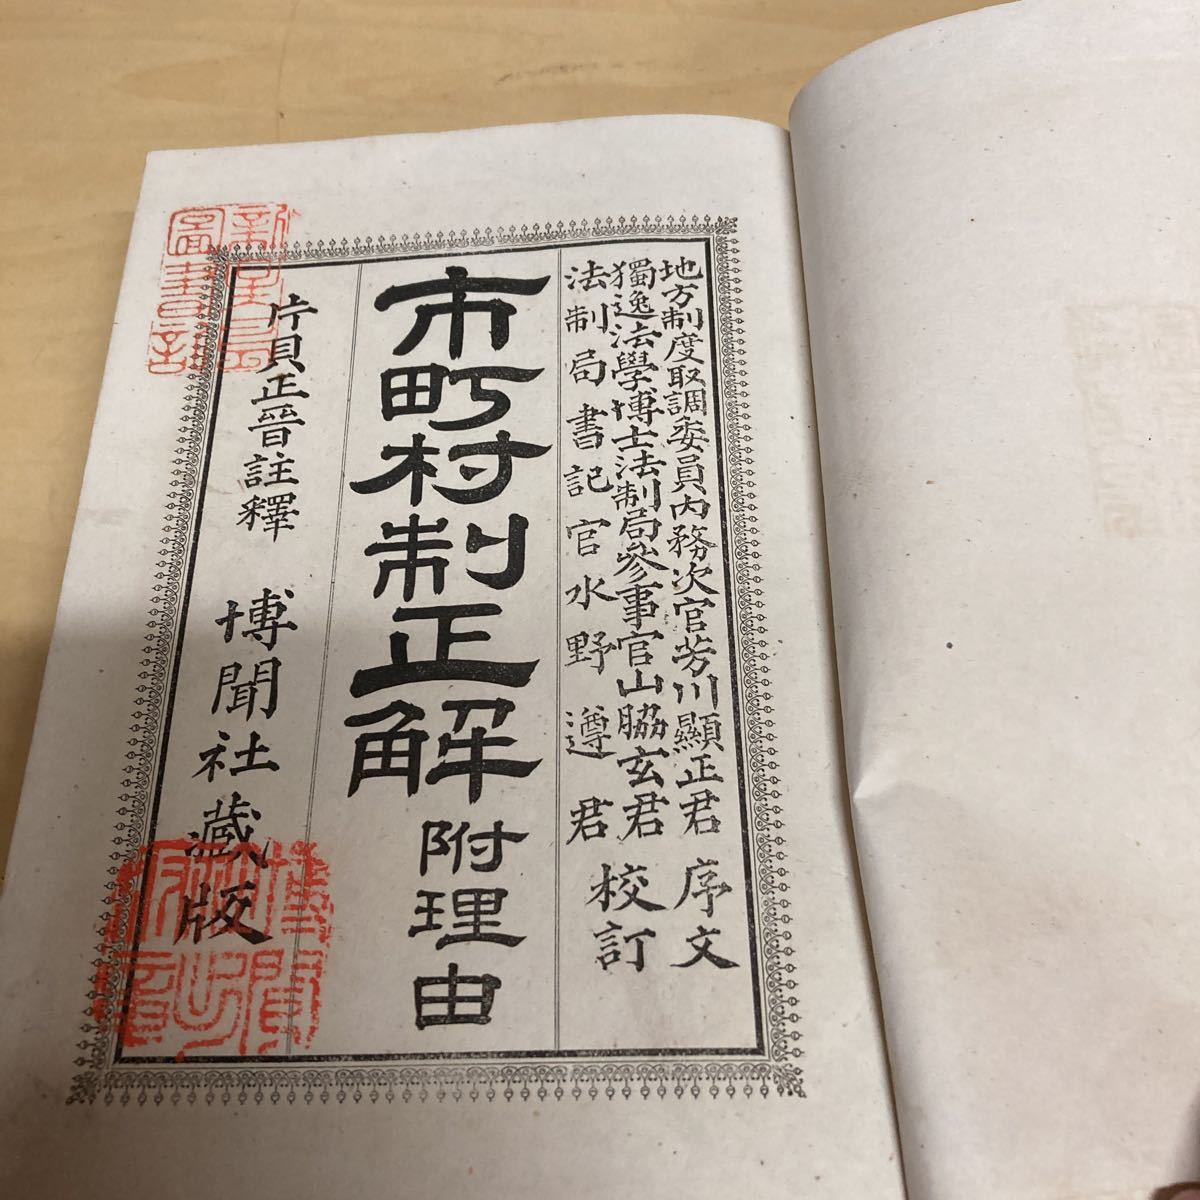 地方制度取調委員内務次官芳川顯正君序文
獨逸法學博士法制局參事官山脇玄君校訂
法制局書記官水野遵君
市町村制正解附理由
片貝正晉註釋 博聞社藏版